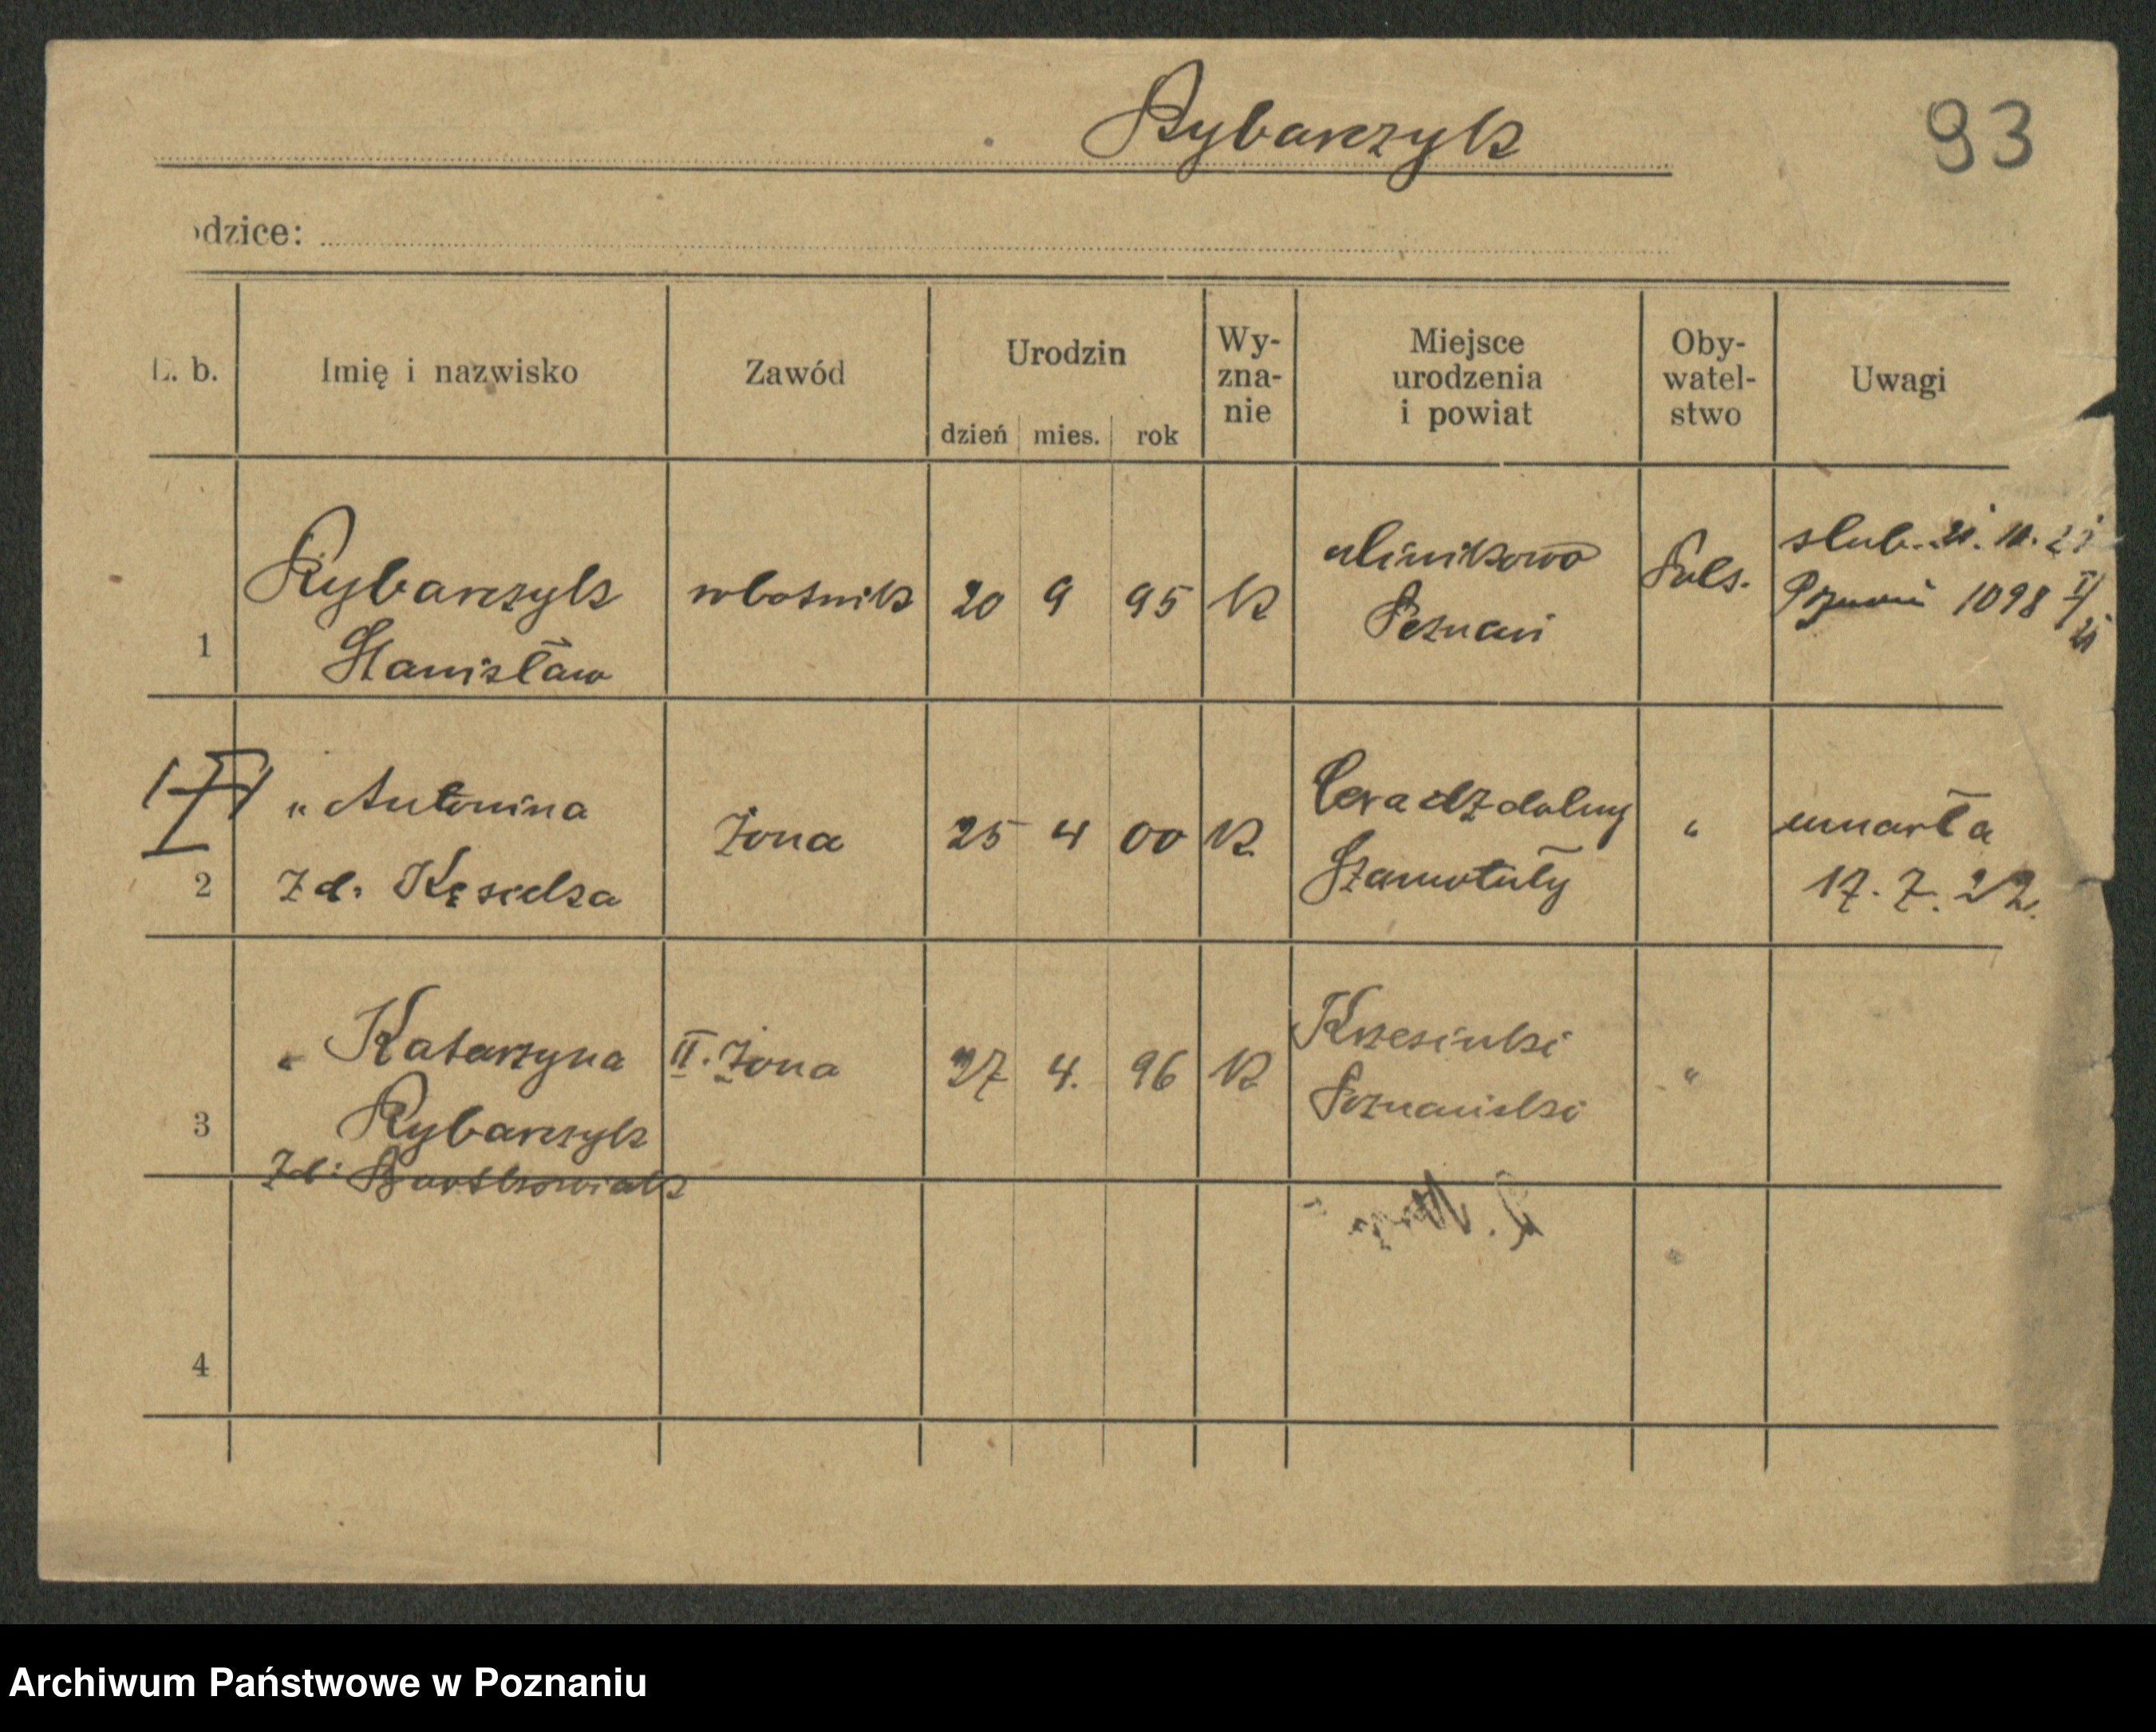 Rybarczyk
93
odzice:
L. b.
Imię i nazwisko
Zawód
Urodzin
dzień
mies.
rok
Wy-
zna-
nie
Miejsce
urodzenia
i powiat
Oby-
watel-
stwo
Uwagi
1
Rybarczyk
Stanisław
robotnik
20
9
95
K
Poznań
Pols.
slub. 21. 10. 21
Poznań 1098
2
" Antonina
zd.
żona
25
4
00
K
Ceradz dolny
Szamotuły
"
umarła
17. 7. 22.
3
" Katarzyna
Rybarczyk
zd: Bartkowiak
II. żona
27
4.
96
K
Krzesinki
Poznański
"
4
Archiwum Państwowe w Poznaniu